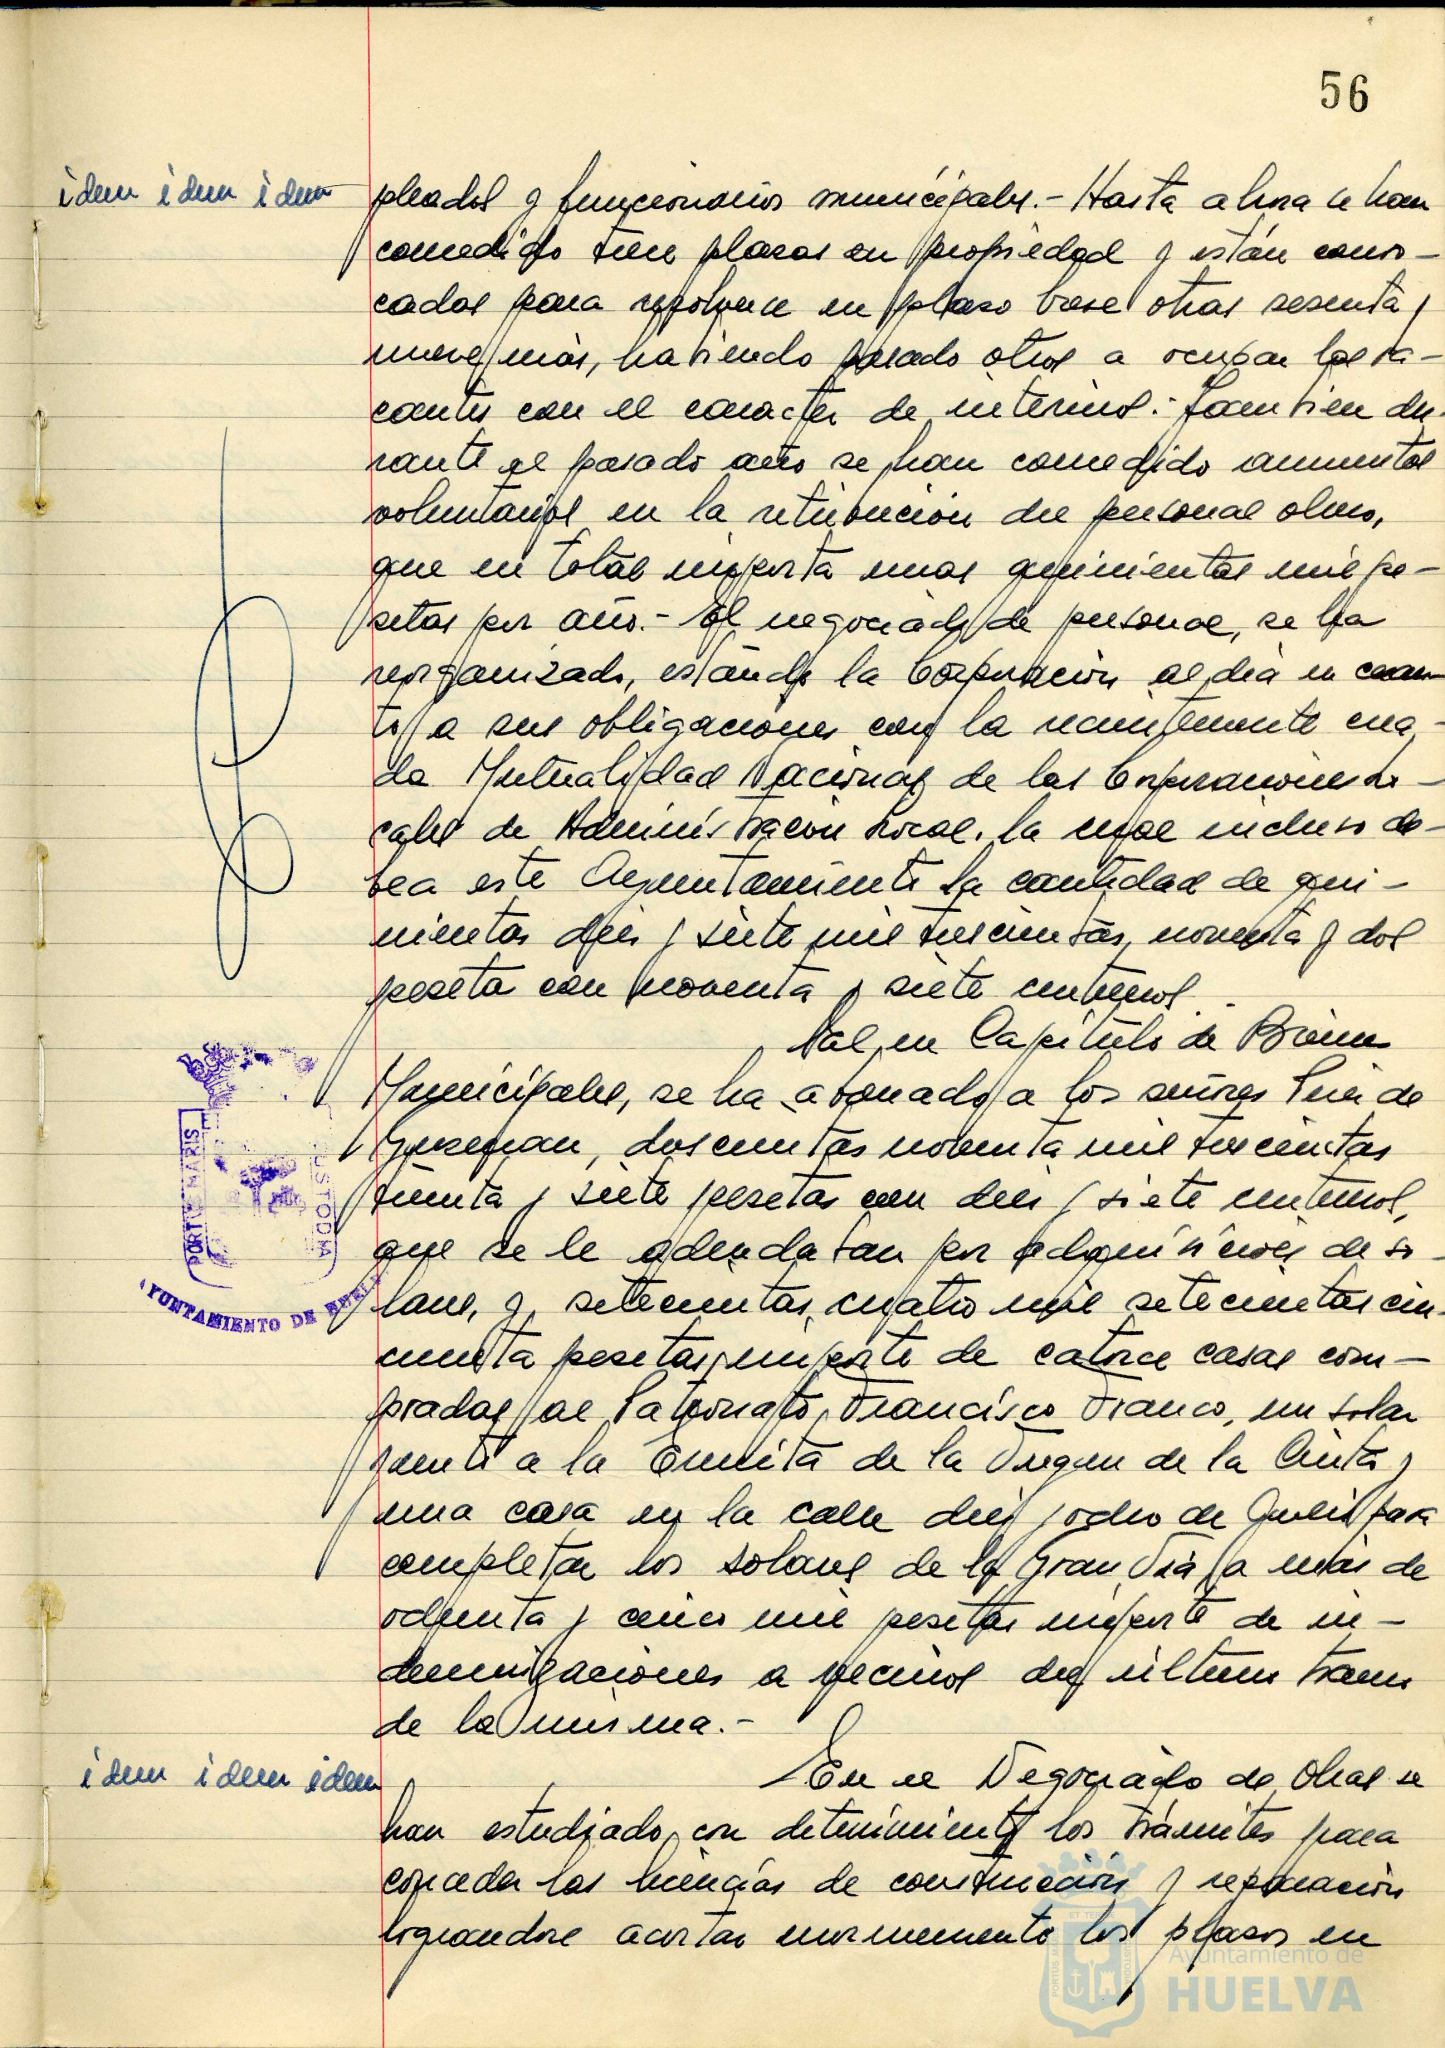 56
idem idem idem
pleados y funcionarios municipales.- Hasta ahora se han
concedido trece plazas en propiedad y están convo-
cadas para resolverse en plazo breve otras sesenta y
nueve más, habiendo pasado otros a ocupar las va-
cantes con el caracter de interinos.- Tambien du-
rante el pasado año se han concedido aumentos
voluntarios en la retribución del personal obrero,
que en total importa unas quinientas mil pe-
setas por año.- El negociado de personal, se ha
reorganizado, estando la Corporación al dia en cuan-
to a sus obligaciones con la recientemente crea-
da Mutualidad Nacional de las Corporaciones Lo-
cales de Administración Local, la cual incluso de-
bea este Ayuntamiento la cantidad de qui-
nientas diez y siete mil trescientas, noventa y dos
peseta con noventa y siete centimos.
Tal en Capítulo de Bienes
Municipales, se ha abonado a los señores Perez de
Guzman, doscientas noventa mil trescientas
treinta y siete pesetas con diez y siete centimos,
que se le adeudaban por adquisiciones de so-
lares, y setecientas cuatro mil setecientas cin-
cuenta pesetas, importe de catorce casas com-
pradas al Patronato Francisco Franco, un solar
frente a la Ermita de la Virgen de la Cinta y
una casa en la calle diez y ocho de Julio para
completar los solares de la Gran Via, a más de
ochenta y cinco mil pesetas importe de in-
demnizaciones a vecinos del ultimo tramo
de la misma.-
idem idem idem
En el Negociado de Obras se
han estudiado con detenimiento los trámites para
conceder las licencias de construcción y reparación
lograndose acortar enormemente los plazos en
PORTUS MARIS
CUSTODIA
AYUNTAMIENTO DE HUELVA
Ayuntamiento de
HUELVA